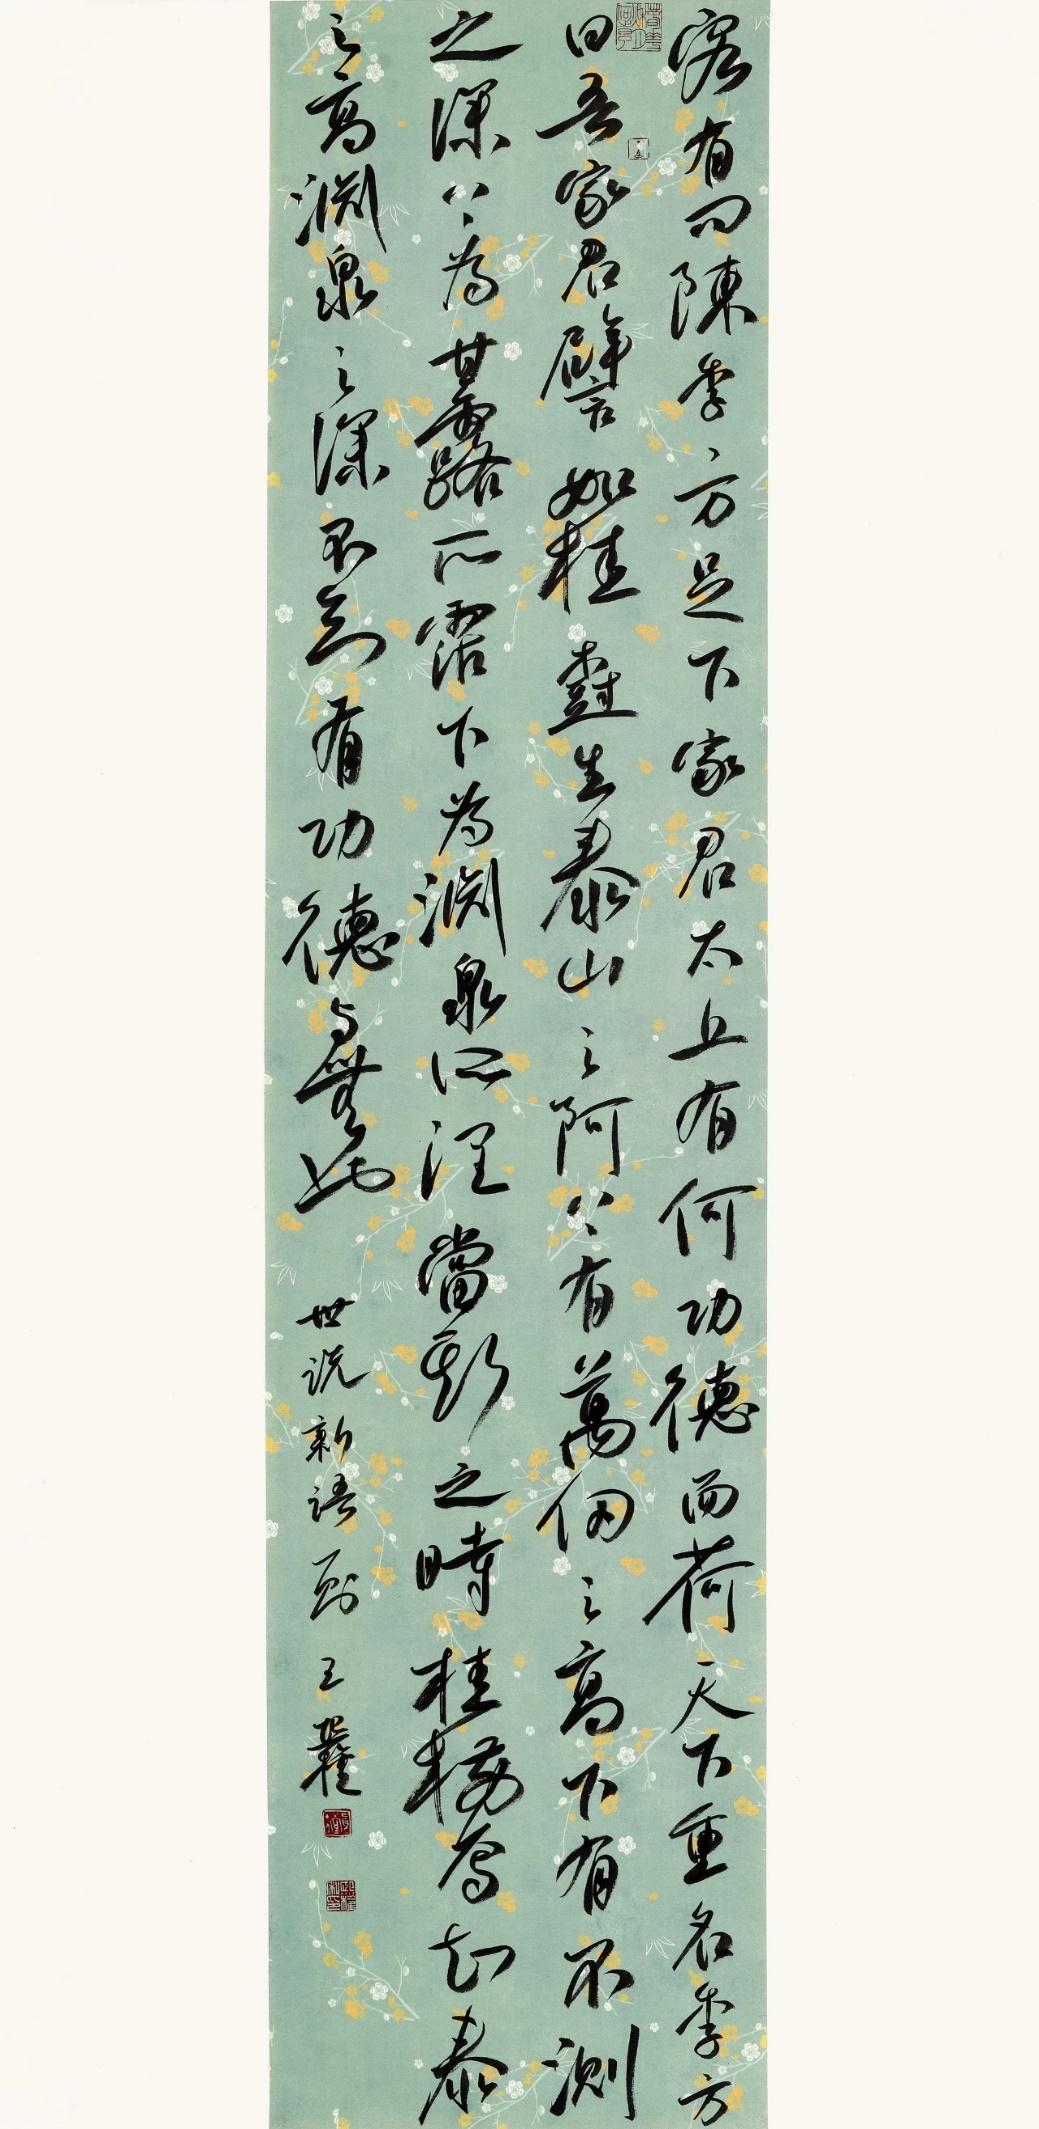 客有问陳季方足下家君太丘有何功德而荷天下重名季方
曰吾家君譬如桂樹生泰山之阿上有萬仞之高下有不測
之深上为甘露所霑下为渊泉所潤當斯之時桂樹焉知泰
之高渊泉之深不知有功德与無也
世说新语 王